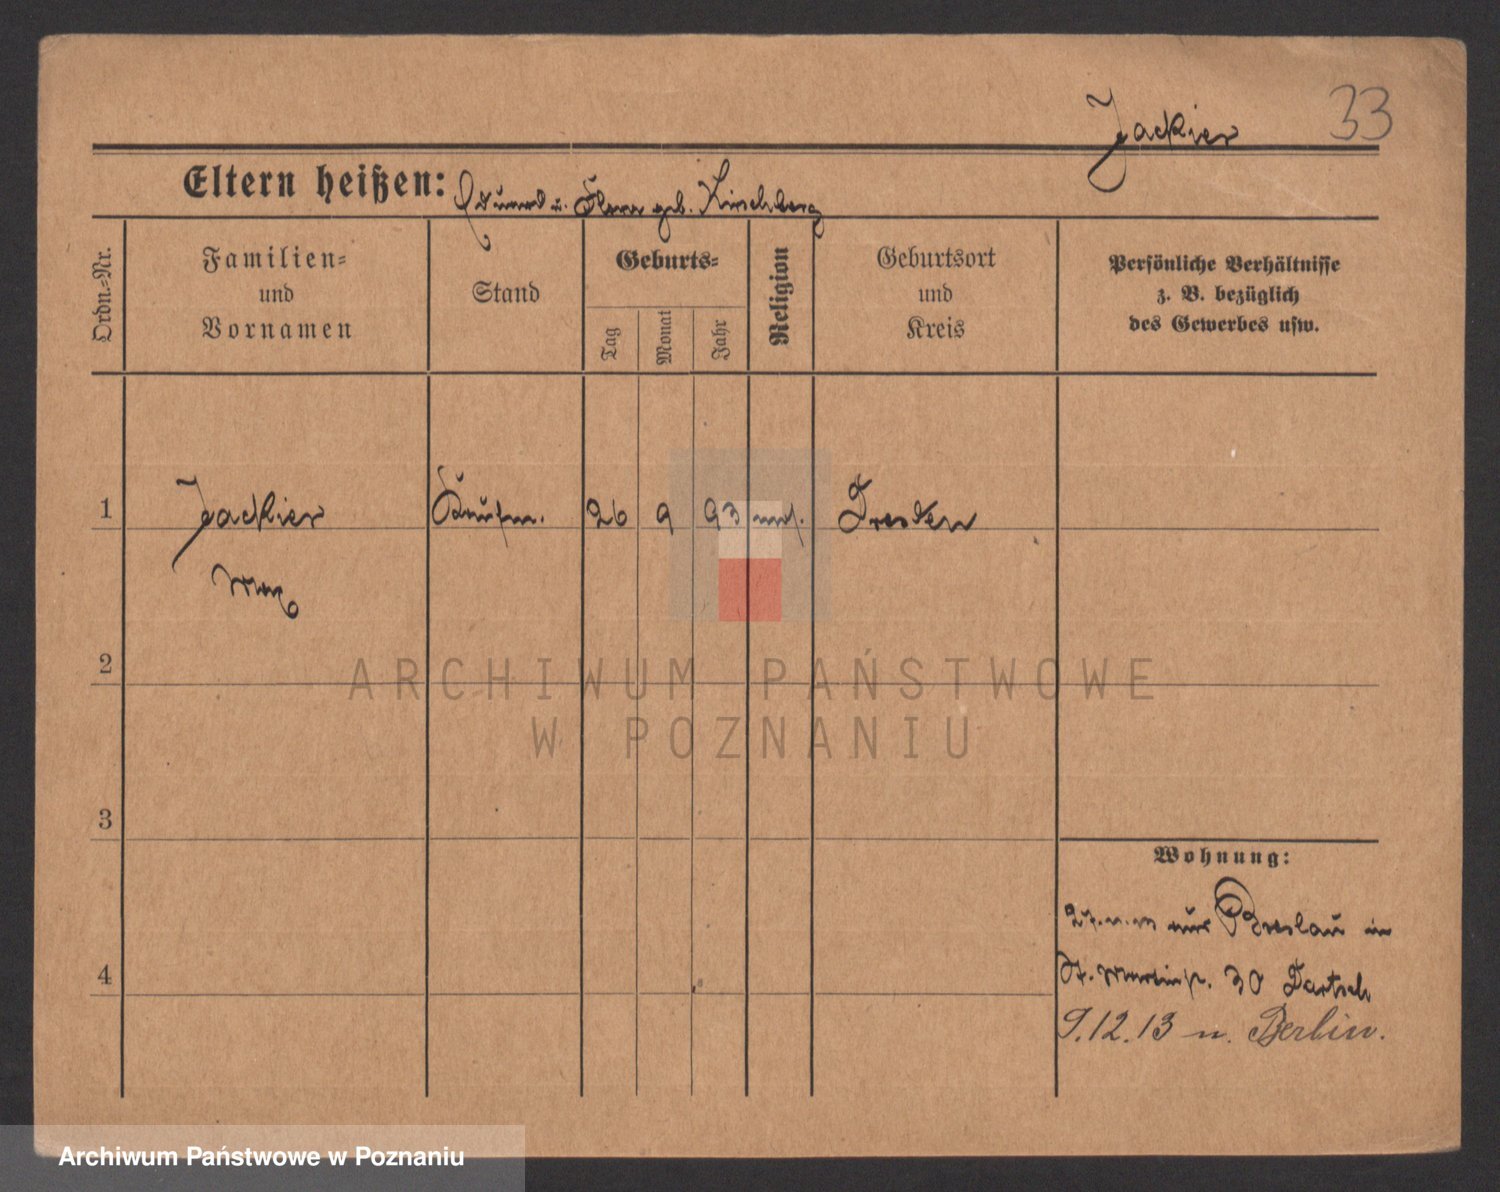 33
Jackier
Eltern heißen: Eduard u. geb. Hirschberg
Ordn.-Nr.
Familien-
und
Vornamen
Stand
Geburts-
Tag
Monat
Jahr
Religion
Geburtsort
und
Kreis
Persönliche Verhältnisse
z. B. bezüglich
des Gewerbes usw.
1 Jackier Kaufm. 26 9 93 mos. Dresden
Max
2
ARCHIWUM PAŃSTWOWE
W POZNANIU
3
Wohnung:
aus Breslau in
St. Martinstr. 30 Dartsch
4
9.12.13 n. Berlin.
Archiwum Państwowe w Poznaniu